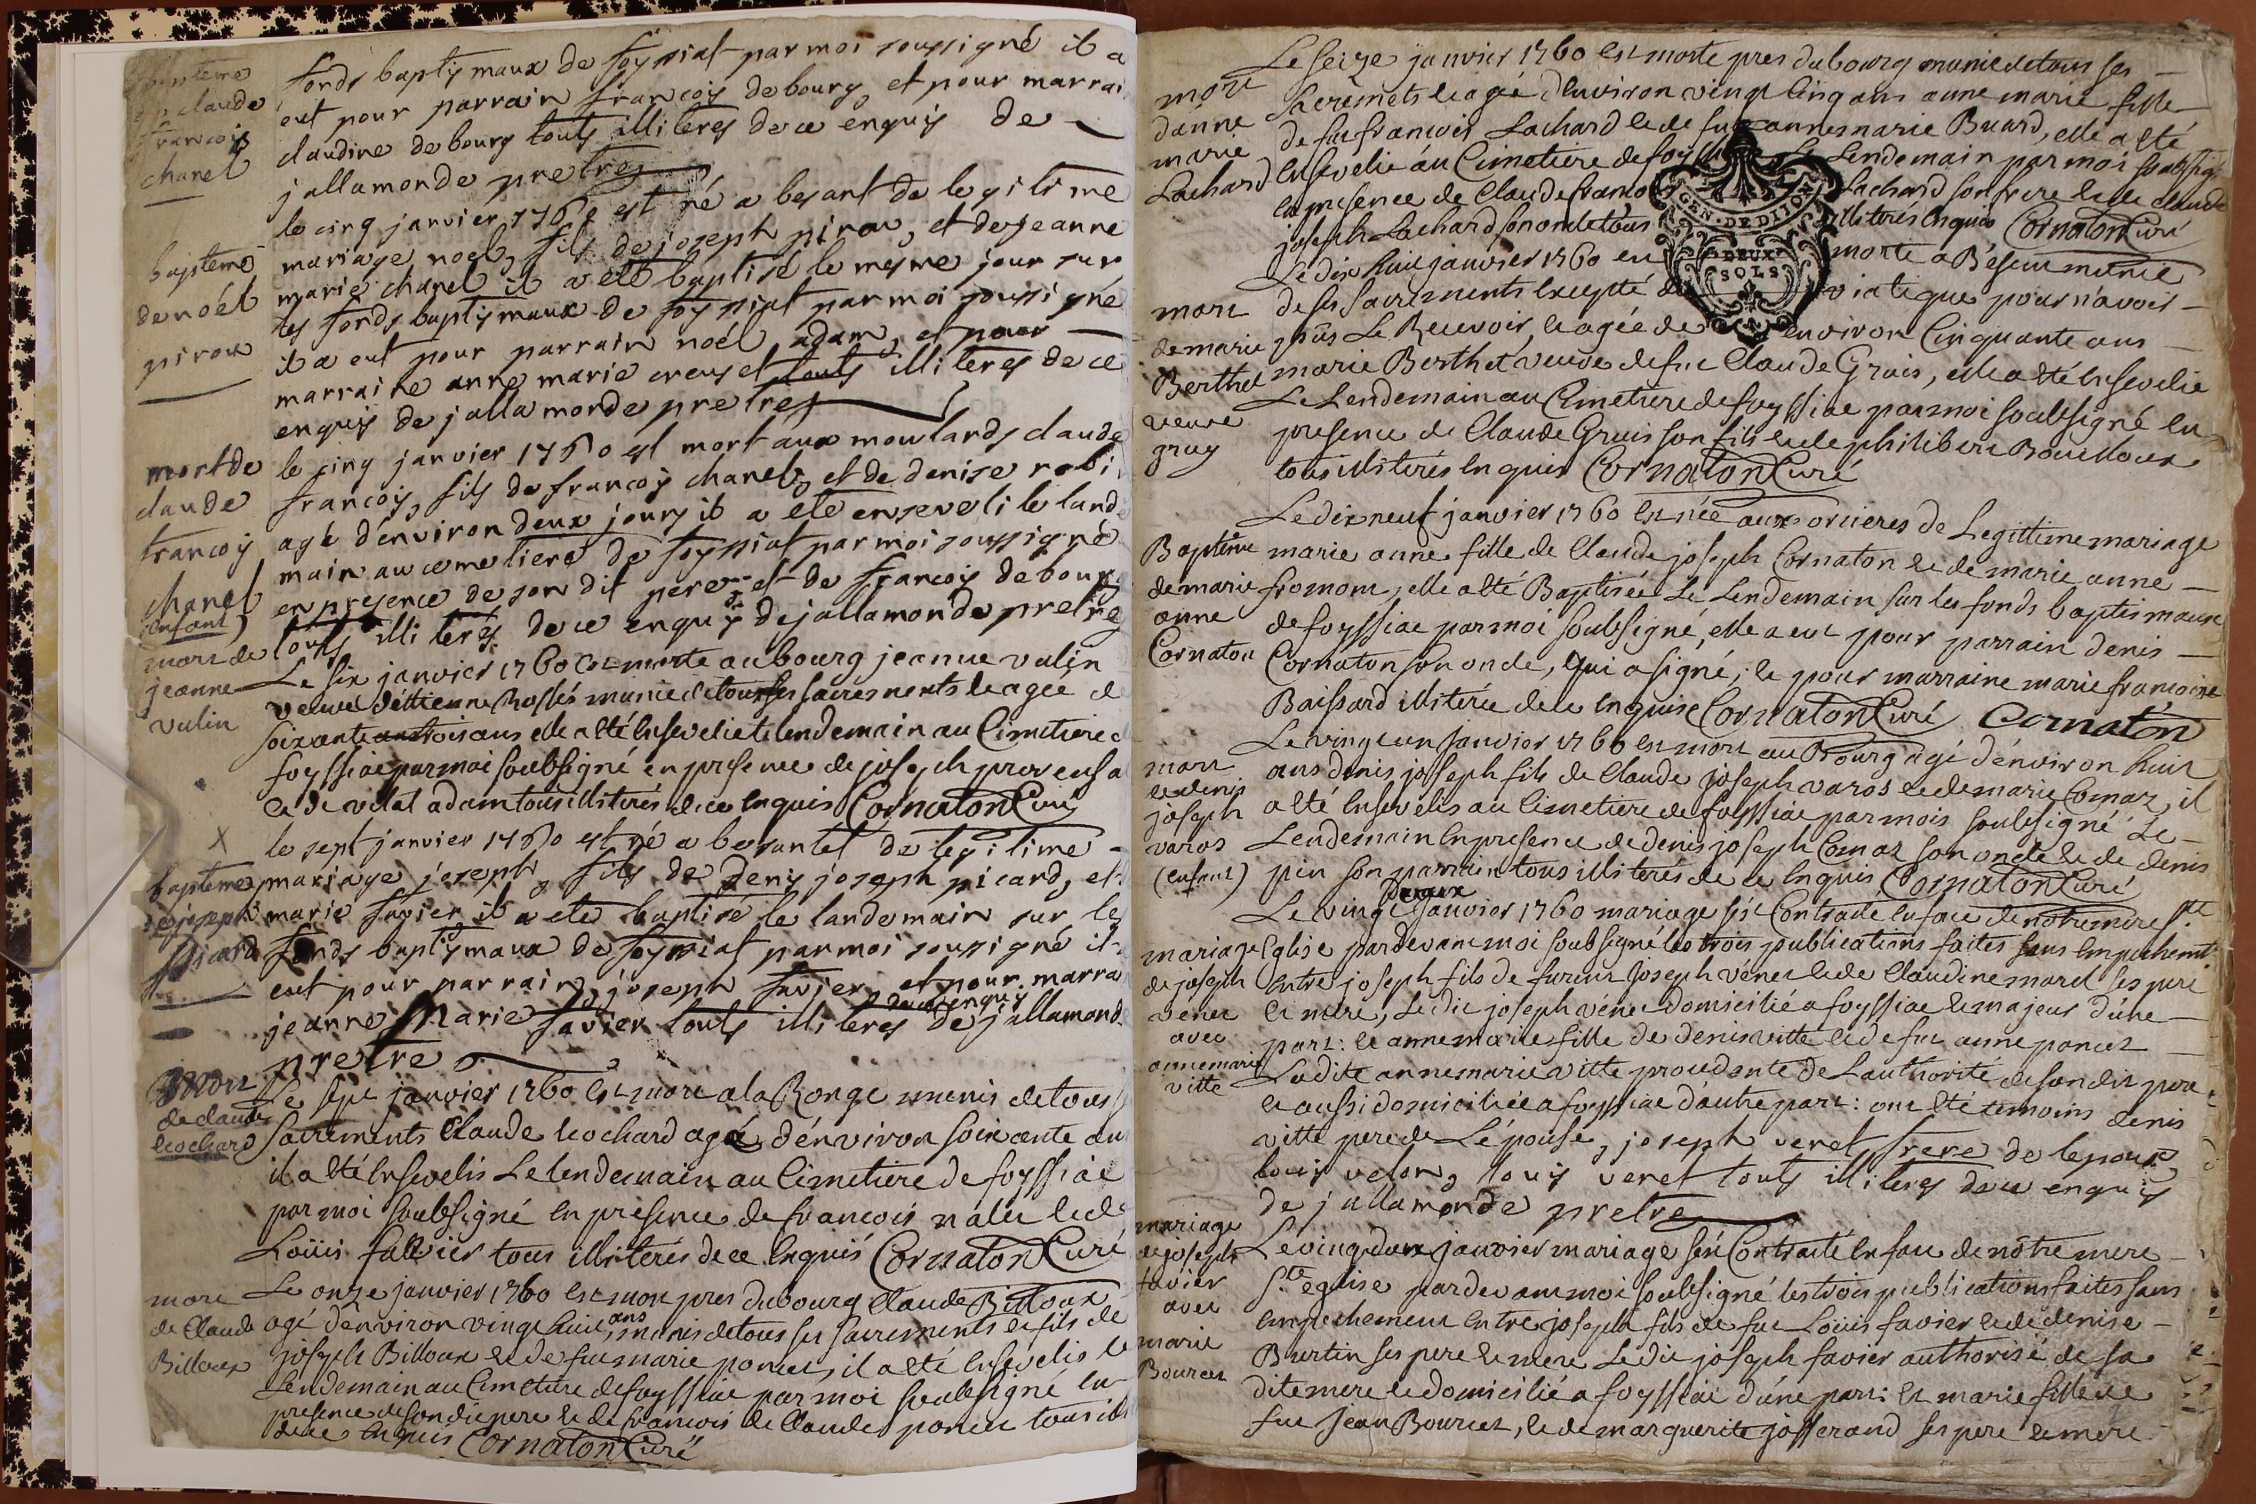 baptême
claude
francois
chanel
fonds baptismaux de foyssiat par moi soussigné il a
eut pour parrain francois debourg et pour marrai
claudine debourg touts illiterez de ce enquis de
jallamonde pretre
baptême
de noël
pirou
le cinq janvier 1760 est né a besant de legitime
mariage noel, fils de joseph pirou, et de jeanne
marie chanel il a eté baptisé le mesme jour sur
les fonds baptismaux de foyssiat par moi soussigné
il a eut pour parrain noél adam, et pour
marraine anne marie creuset touts illiteres de ce
enquis de jallamonde pretre
mort de
claude
francois
chanel
(enfant)
le cinq janvier 1760 est mort aux moulards claude
francois, fils de francois chanel, et de denise robi
agé d'environ deux jours il a eté enseveli le lande
main au cemetiere de foyssiat par moi soussigné
en presence de son dit pere et de francois debourg
touts illiterés de ce enquis dejallamonde pretre
mort de
jeanne
vulin
Le six janvier 1760 est morte au bourg jeanne vulin
veuve d'ettienne munie de tous ses sacrements et agée de
soixante trois ans elle a été ensevelie le lendemain au Cimetiere d
foyssiac par moi soubsigné en presence de joseph provensa
et de vital adam tous illiterés de ce enquis Cornaton Curé
baptême
de joseph
picard
le sept janvier 1760 est né a besantet de legitime
mariage joseph, fils de deny joseph picard, et
marie favier il a eté baptisé le landemain sur les
fonds baptismaux de foyssiat par moi soussigné il
eut pour parrain joseph favier, et pour marra
jeanne Marie favier touts illiteres de ce enquis de jallamond
pretre
Mort
de claude
cochard
Le sept janvier 1760 est mort a la Ronge munis de tous s
sacrements Claude cochard agé d'environ soixante an
il a été Ensevelis Le lendemain au Cimetiere de foyssiac
par moi soubsigné en presence de francois et de
Loüis favier tous illiterés de ce enquis Cornaton Curé
mort
de Claude
Billoux
Le onze janvier 1760 est mort pres du bourg Claude Billoux
agé d'environ vingt huit ans, munis de tous ses sacrements et fils de
joseph Billoux et de fue marie poncet, il a été ensevelis le
Lendemain au Cimetiere de foyssiac par moi soubsigné en
presence de son dit pere et de francois de Claude poncet tous ill
de ce enquis Cornaton Curé
mort
d'anne
marie
Lachard
Le seize janvier 1760 est morte pres du bourg munie de tous ses
sacremets et agée d'environ vingt cinq ans anne marie fille
de fut francois Lachard et de fue anne marie Buard, elle a été
Ensevelie au Cimetiere de foyss Le Lendemain par moi soubsig
en presence de Claude franco Lachard son frere et de claude
joseph Lachard son oncle tous illiterés enquis Cornaton Curé
GEN. DE DIJON
DEUX
SOLS
mort
de marie
Berthet
veuve
gruy
Le dix huit janvier 1760 est morte a Béseur munie
de ses sacrements excepté du viatique pour n'avoir
pûs Le Recevoir, et agée de environ Cinquante ans
marie Berthet veuve de fut Claude Gruis, elle a été ensevelie
Le Lendemain au Cimetiere de foyssiac par moi soubsigné en
presence de Claude Gruis son fils et de philibert Bouilloux
tous illiterés enquis Cornaton Curé
Baptême
de marie
anne
Cornaton
Le dix neuf janvier 1760 est née aux ornieres de Legittime mariage
marie anne fille de Claude joseph Cornaton et de marie anne
fromont, elle a été Baptisée Le Lendemain sur les fonds baptismaux
de foyssiac par moi soubsigné, elle a eut pour parrain denis
Cornaton son oncle, qui a signé; et pour marraine marie francoise
Baissard illiterée de ce enquise Cornaton Curé Cornaton
mort
de denis
joseph
varos
(enfant)
Le vingt un janvier 1760 est mort au Bourg agé d'environ huit
ans denis joseph fils de Claude joseph varos et de marie Comaz, il
a été ensevelis au Cimetiere de foyssiac par mois soubsigné Le
Lendemain en presence de denis joseph Comaz son oncle et de denis
pin son parrain tous illiterés de ce enquis Cornaton Curé
mariage
de joseph
venet
avec
annemarie
vitte
Le vingt deux janvier 1760 mariage s'ést Contracté en face de nôtre mere ste
Eglise pardevant moi soubsigné les trois publications faites sans empechemt
Entre joseph fils de furent joseph vénet et de Claudine morel ses pere
et mere, Le dit joseph vénet domicilié a foyssiac et majeur d'une
part: et anne marie fille de denis vitte et de fue anne poncet
Ladite anne marie vitte procedante de L'authorité de son dit pere
et aussi domiciliée a foyssiac d'autre part: ont été temoins denis
vitte pere de L'épouse, joseph venet frere de lepoux
louis velon, louis venet touts illiteres de ce enquis
de jallamonde pretre
mariage
de joseph
favier
avec
marie
Bourcet
Le vingt deux janvier mariage s'ést Contracté en face de nôtre mere
Ste eglise pardevant moi soubsigné les trois publications faites sans
empechement entre joseph fils de fut Loüis favier et de denise
Burtin ses pere et mere Le dit joseph favier authorisé de sa
dite mere et domicilié a foyssiac d'une part: et marie fille de
fut jean Bourcet, et de marguerite josserand ses pere et mere